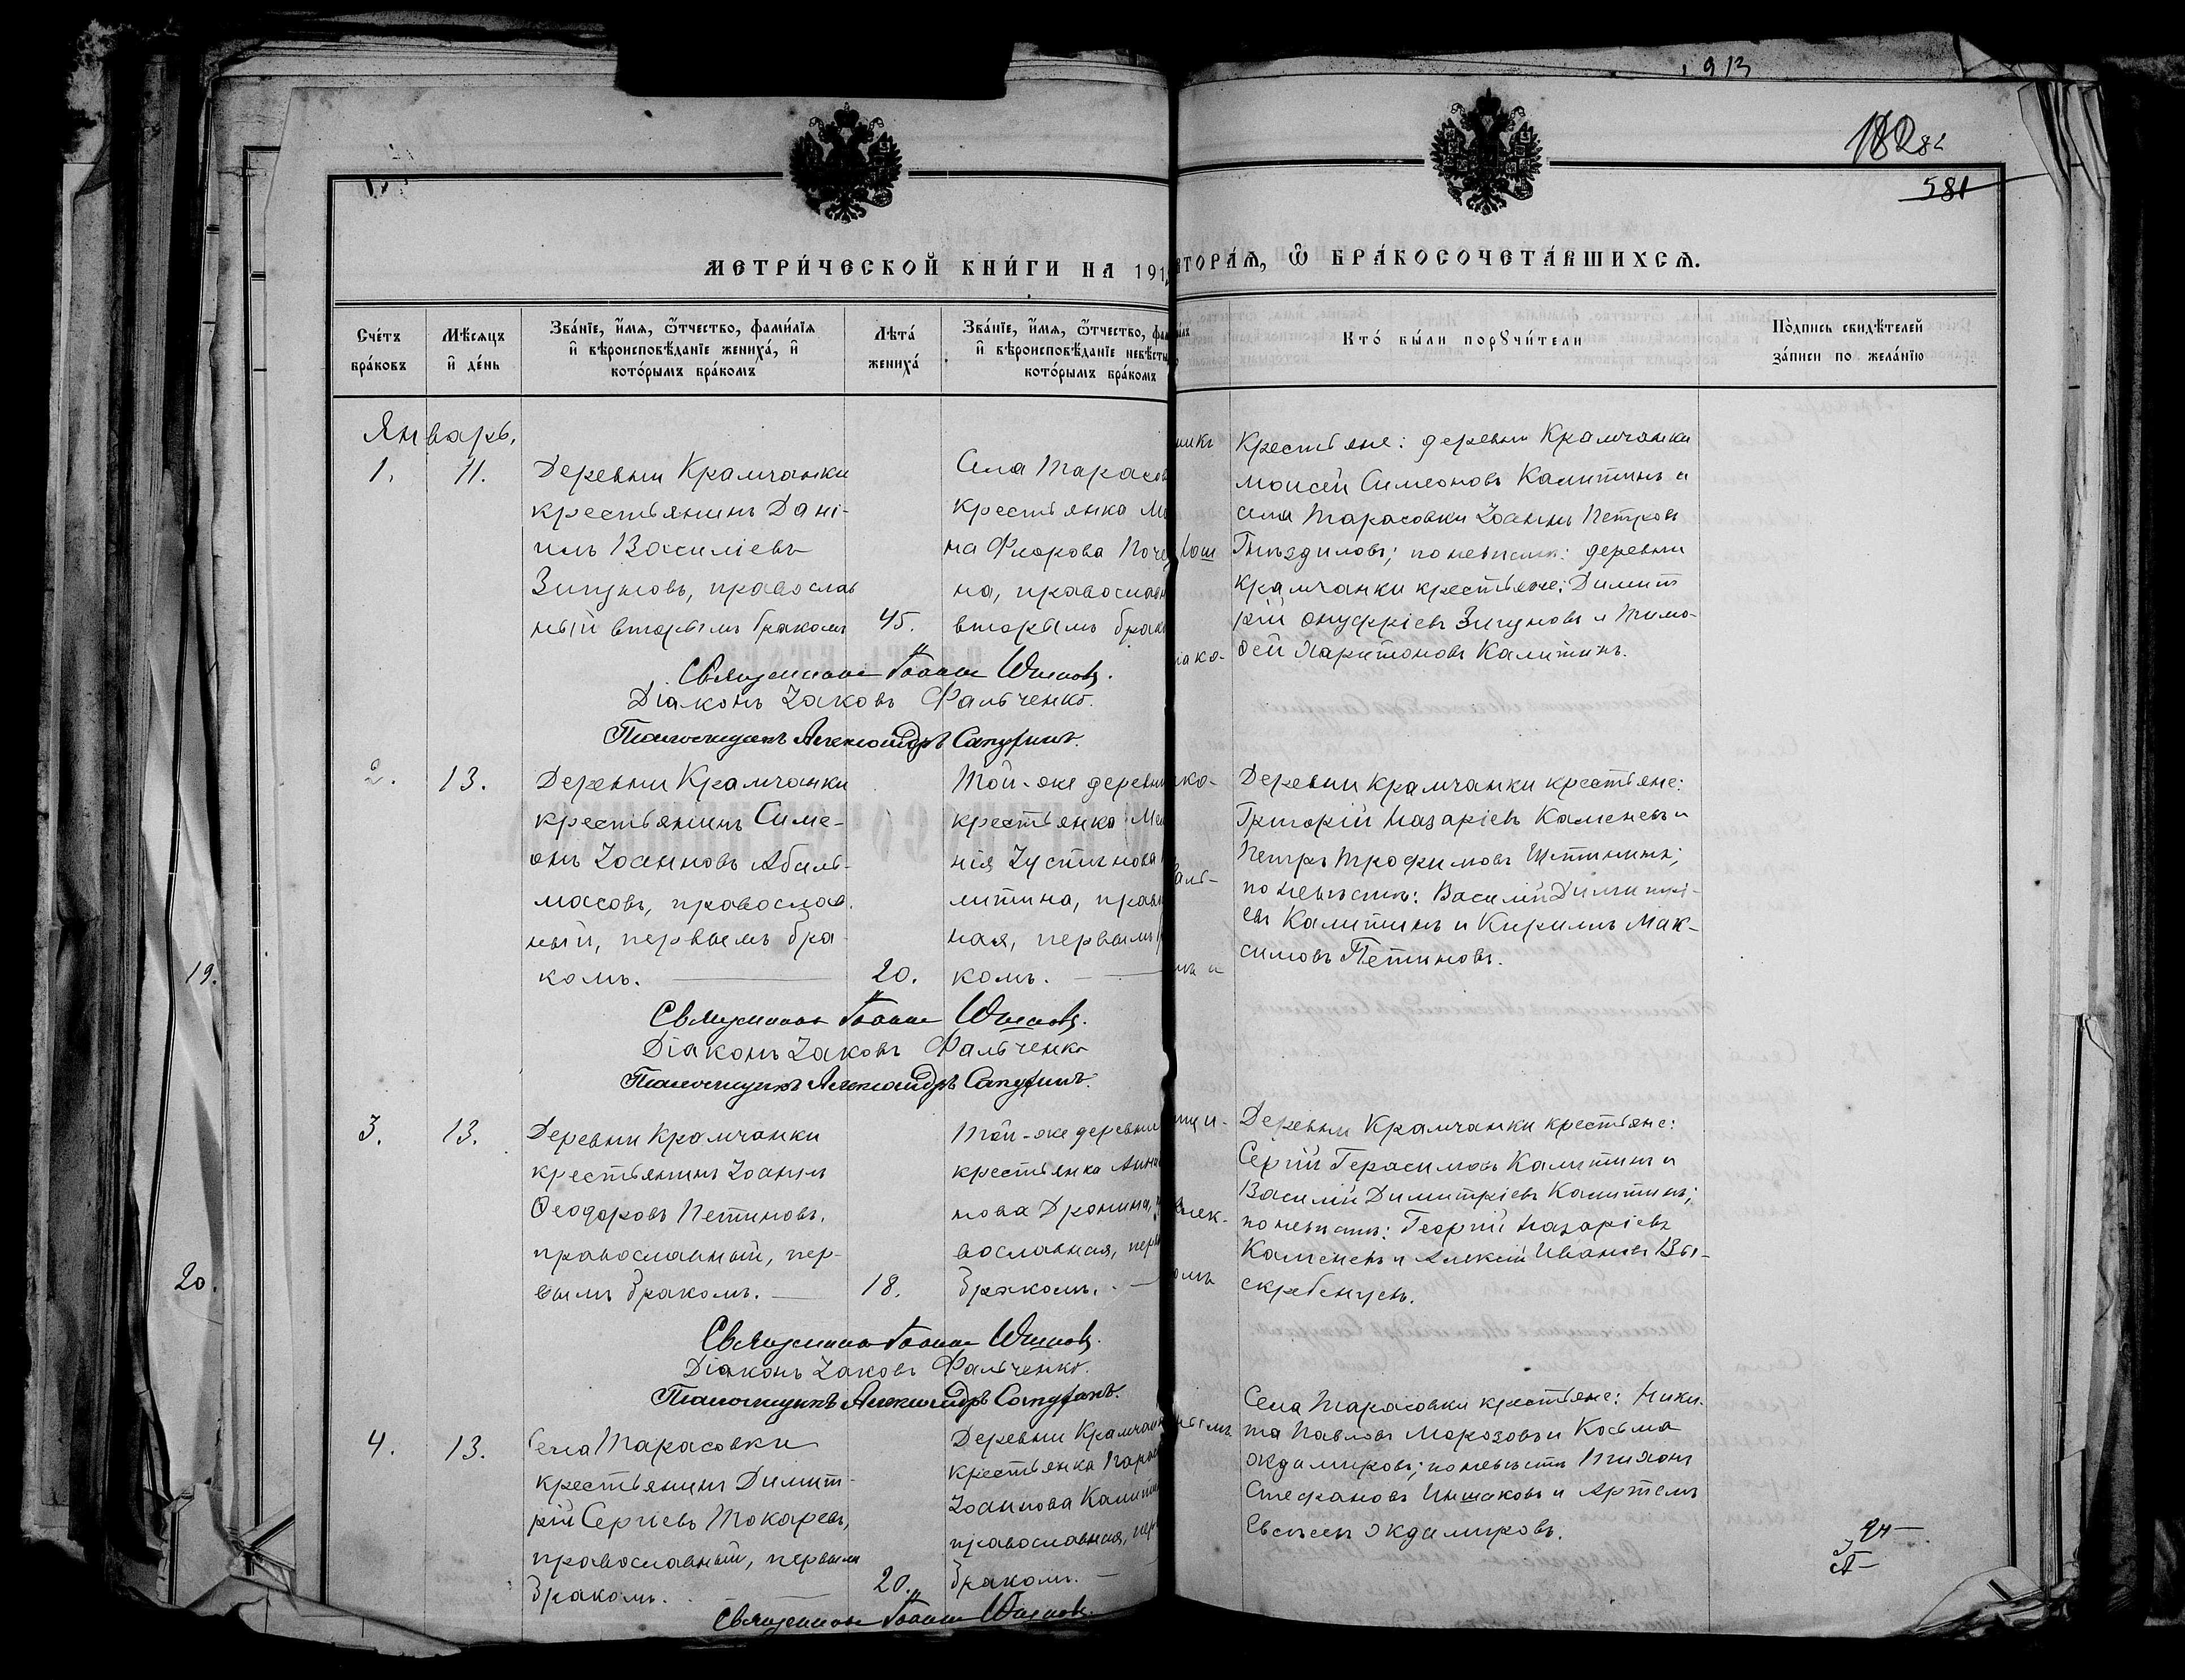 913
182 82
581
МЕТРИ́ЧЕСКОЙ КНИ́ГИ НА 191
ВТОРА́Ѧ, Ѡ҆ БРА́КОСОЧЕТА́ВШИХСѦ.
Сче́тъ бра́ковъ
Мѣ́сяцъ и҆ де́нь
Зва́нїе, и҆́мѧ, ѻ҆́тчество, фами́лїѧ
и҆ вѣроисповѣ́данїе жениха́, и҆
кото́рымъ бра́комъ
Лѣта́ жениха́
Зва́нїе, и҆́мѧ, ѻ҆́тчество, фа
и҆ вѣроисповѣ́данїе невѣ́сты
кото́рымъ бра́комъ
Кто́ бы́ли порꙋчи́тели
По́дпись свидѣ́телей
за́писи по жела́нїю
Январь.
1. 11.
Деревни Крамчанки
крестьянинъ Дані-
илъ Василіевъ
Зигуновъ, православ
ный вторымъ бракомъ
45.
Села Тарасов
крестьянка Ма
на Флорова Поче
на, православн
вторымъ брак
Крестьяне: деревни Крамчанки
Моисей Симеоновъ Калитинъ и
села Тарасовки Іоаннъ Петровъ
Гнѣздиловъ; по невѣстѣ: деревни
Крамчанки крестьяне: Димит
рій Онуфріевъ Зигуновъ и Тимо-
ѳей Харитоновъ Калитинъ.
Священникъ Іоаннъ
Діаконъ Іаковъ Фальченко.
Псаломщикъ Александръ
2. 13.
Деревни Крамчанки
крестьянинъ Симе-
онъ Іоанновъ Абаль-
масовъ, православ.
ный, первымъ бра-
комъ.
20.
Той-же деревни
крестьянка Ме
нія Іустинова
литина, прав
ная, первымъ
комъ.
Деревни Крамчанки крестьяне:
Григорій Назаріевъ Каменевъ и
Петръ Трофимовъ
по невѣстѣ: Василій Димитрі-
евъ Калитинъ и Кириллъ Мак-
симовъ Петиновъ.
Священникъ Іоаннъ
Діаконъ Іаковъ Фальченко
Псаломщикъ Александръ
3. 13.
Деревни Крамчанки
крестьянинъ Іоаннъ
Ѳеодоровъ Петиновъ,
православный, пер-
вымъ бракомъ.
18.
Той-же деревни
крестьянка Анна
нова Дронина,
вославная, пер
бракомъ.
Деревни Крамчанки крестьяне:
Сергій Герасимовъ Калитинъ и
Василій Димитріевъ Калитинъ;
по невѣстѣ: Георгій Назаріевъ
Каменевъ и Алексій Ивановъ Вы-
скребенцевъ.
Священникъ Іоаннъ
Діаконъ Іаковъ Фальченко.
Псаломщикъ Александръ
4. 13.
Села Тарасовки
крестьянинъ Димит-
рій Сергіевъ Токаревъ,
православный, первымъ
бракомъ.
20.
Деревни Крамчан
крестьянка Парас
Іоаннова Калити
православная, пер
бракомъ.
Села Тарасовки крестьяне: Ники-
та Павловъ Морозовъ и Косьма
Ждамировъ; по невѣстѣ Тихонъ
Стефановъ Иншаковъ и Артемъ
Евсѣевъ Ждамировъ.
Священникъ Іоаннъ
19.
20.